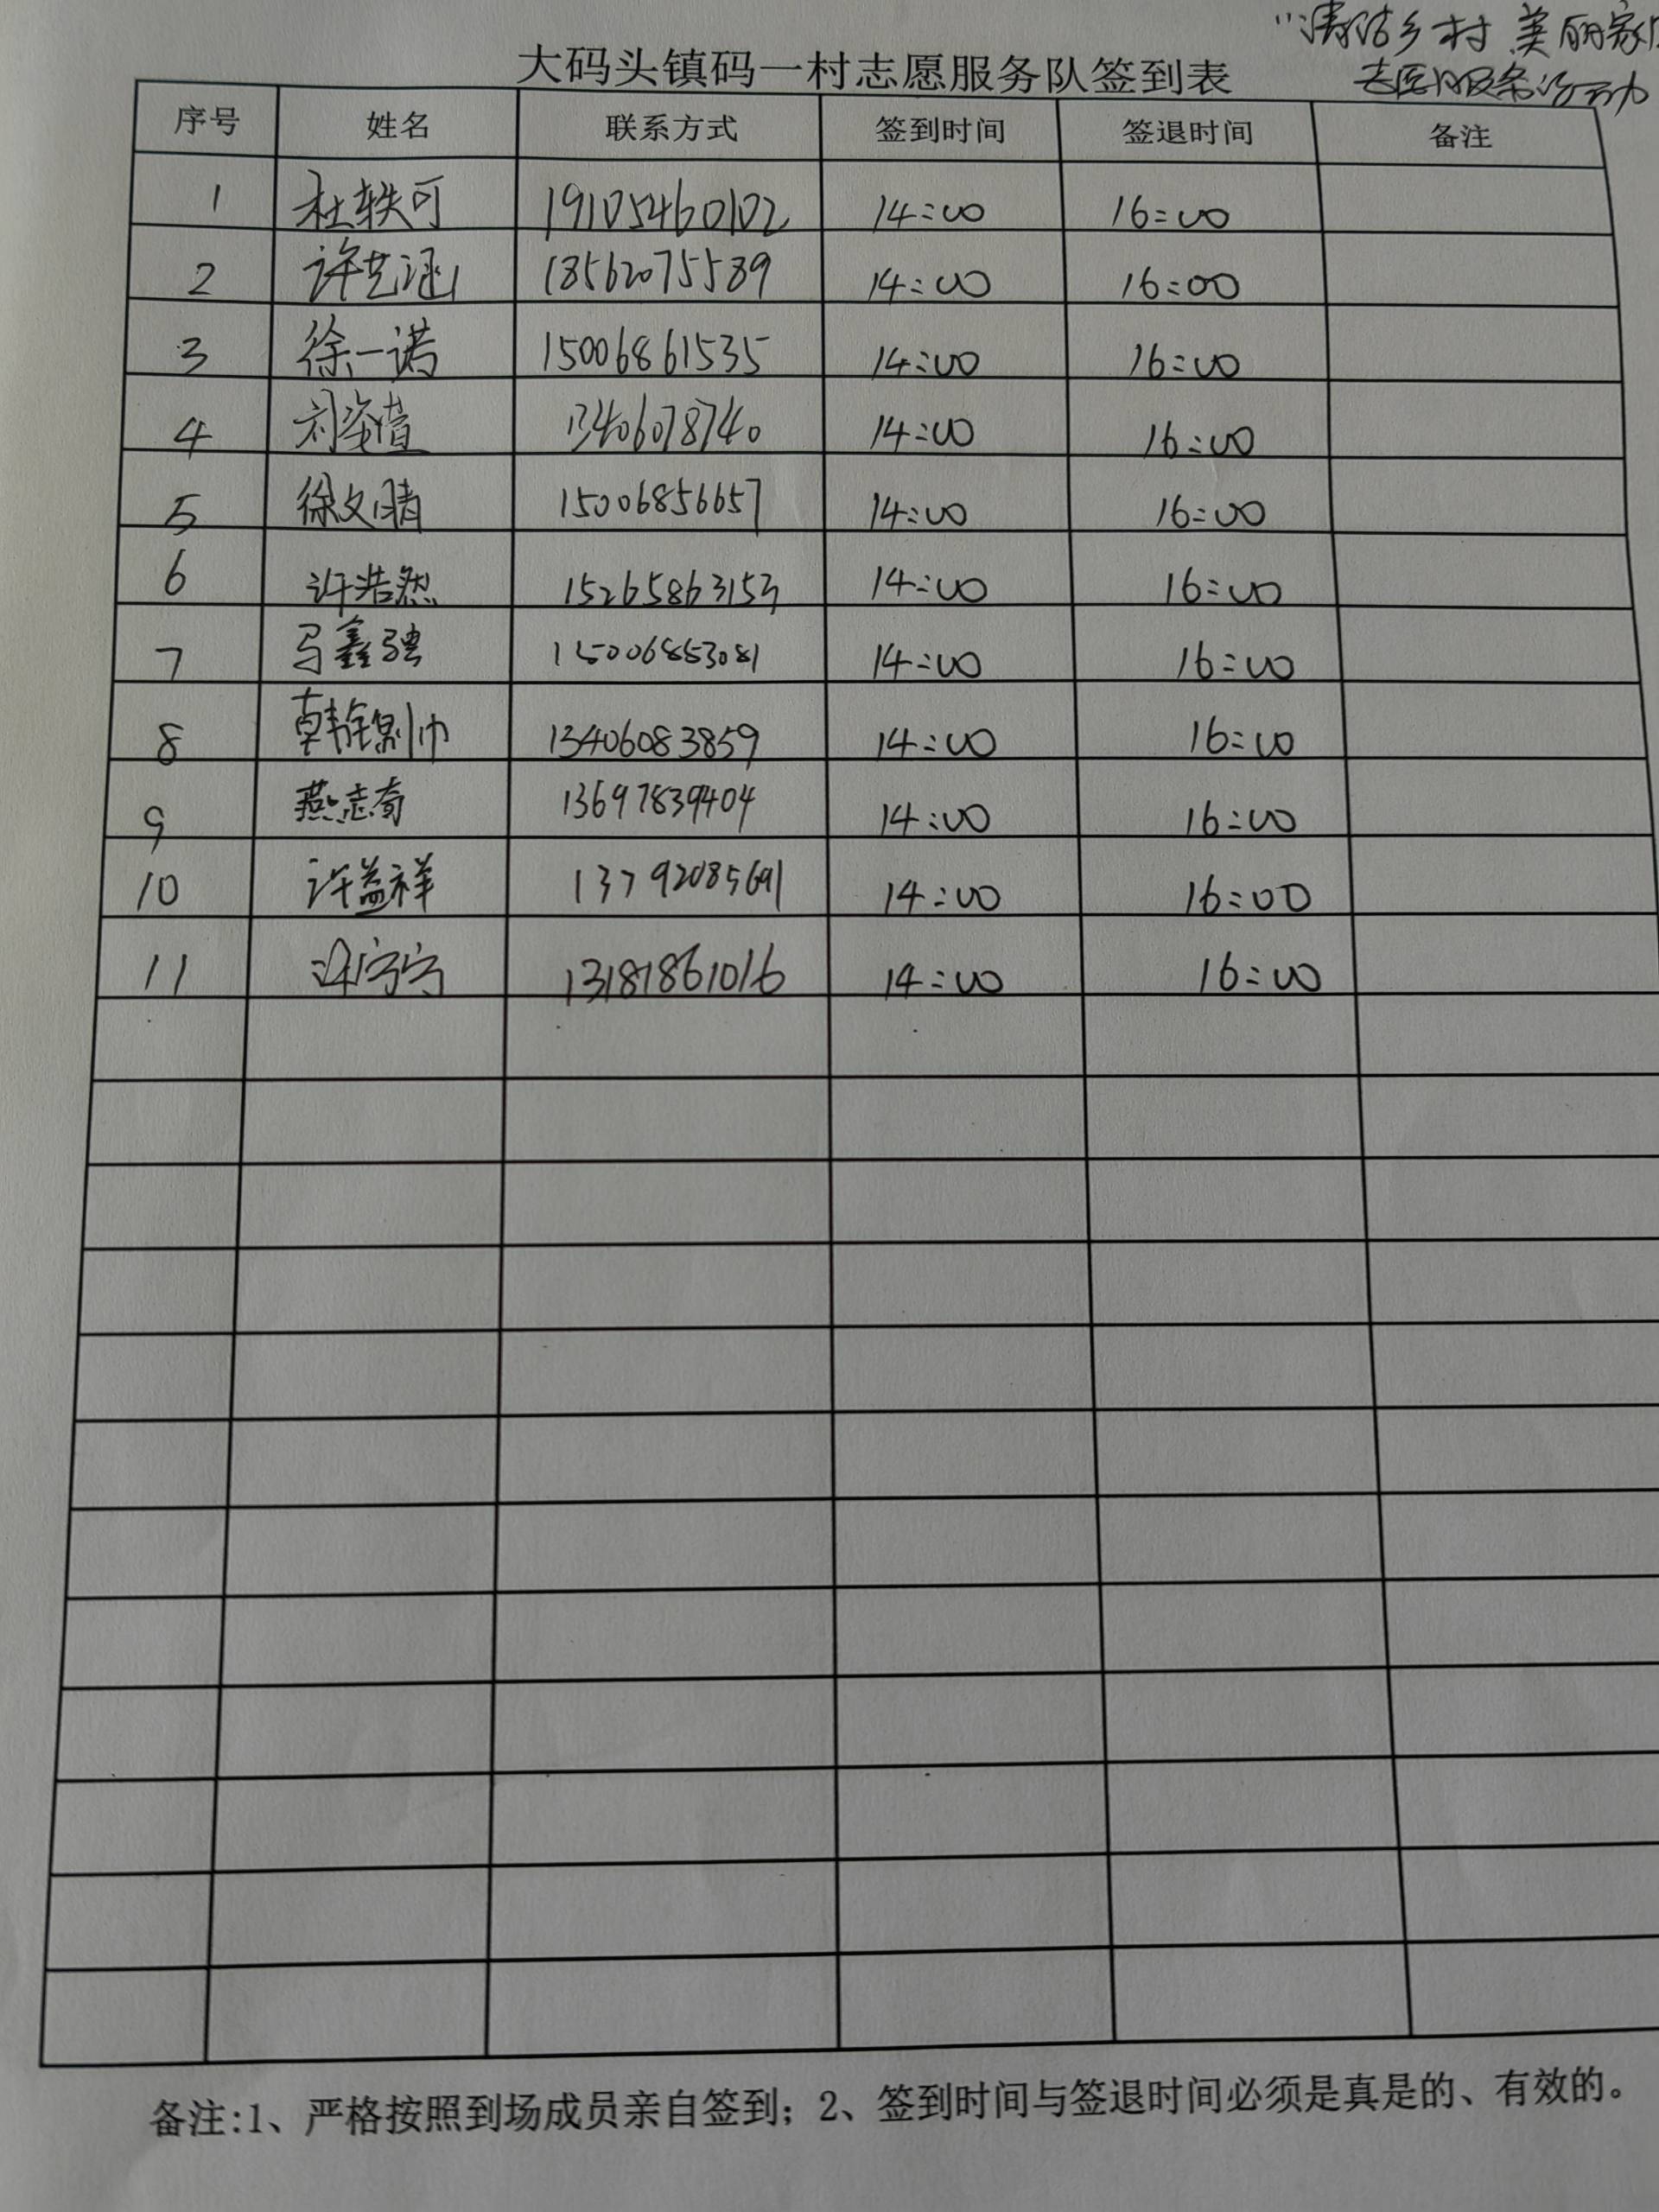 "清洁乡村 美丽家
志愿服务活动
大码头镇码一村志愿服务队签到表
序号 姓名 联系方式 签到时间 签退时间 备注
1 杜轶可 19105460102 14:00 16:00
2 许艺涵 18562075589 14:00 16:00
3 徐一诺 15006861535 14:00 16:00
4 刘姿萱 13406078740 14:00 16:00
5 徐文晴 15006856657 14:00 16:00
6 许浩然 15265863153 14:00 16:00
7 马鑫骋 15006853081 14:00 16:00
8 韩锦帅 13406083859 14:00 16:00
9 燕志奇 13697839404 14:00 16:00
10 许益祥 13792085691 14:00 16:00
11 13181861016 14:00 16:00
备注:1、严格按照到场成员亲自签到；2、签到时间与签退时间必须是真是的、有效的。